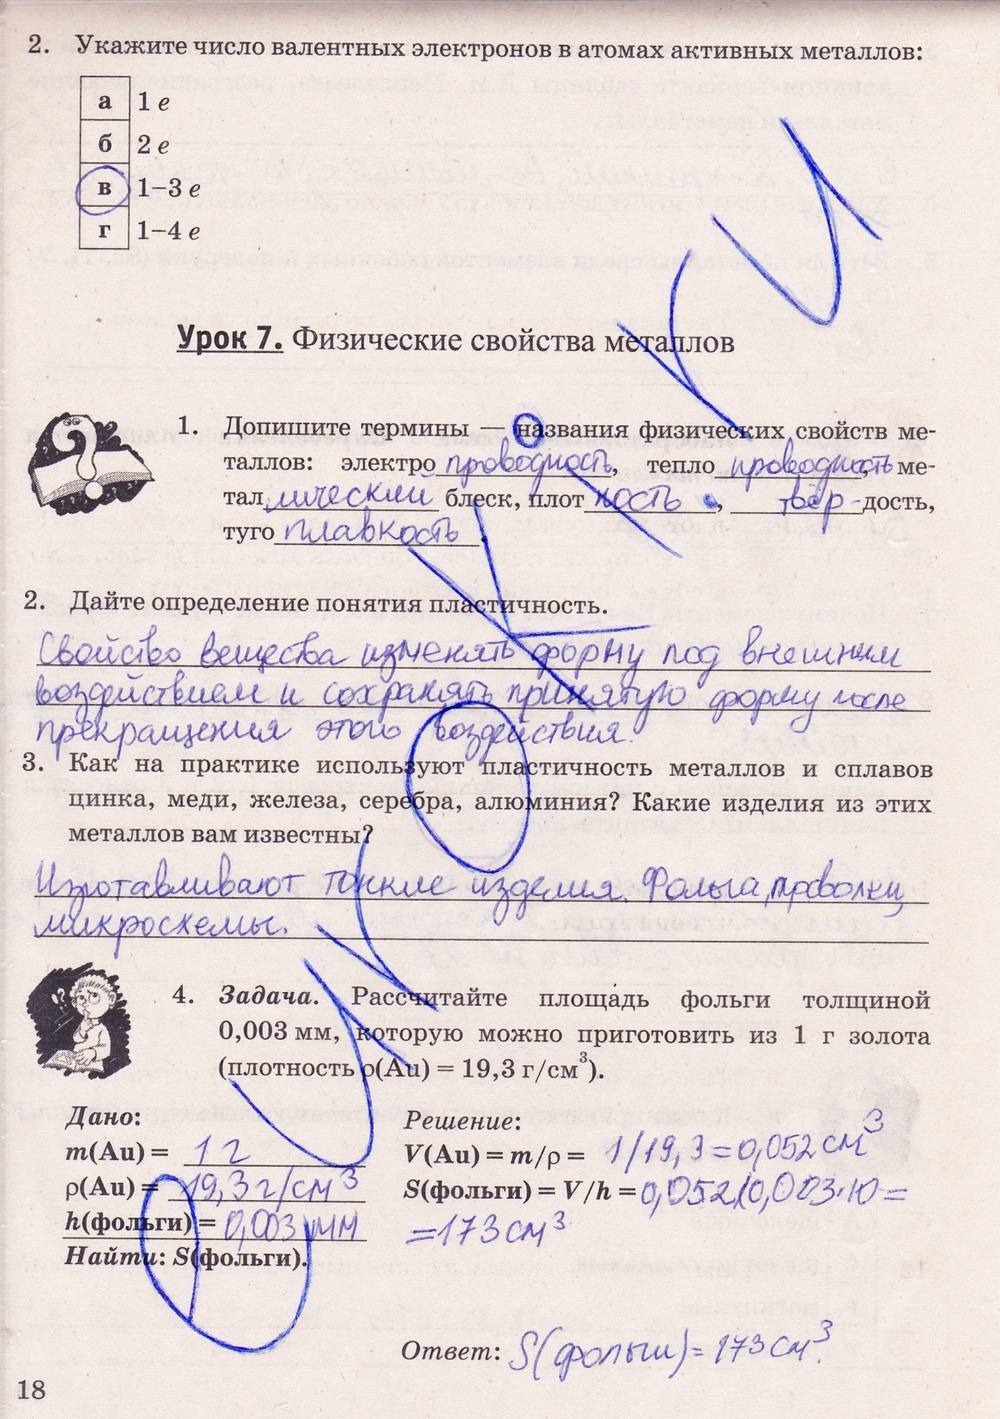 2. Укажите число валентных электронов в атомах активных металлов:
а 1 е
б 2 е
в 1–3 е
г 1–4 е
Урок 7. Физические свойства металлов
1. Допишите термины — названия физических свойств ме-
таллов: электро проводность, тепло проводность, ме-
тал лический блеск, плот ность, твёр - дость,
туго плавкость.
2. Дайте определение понятия пластичность.
Свойство вещества изменять форму под внешним
воздействием и сохранять принятую форму после
прекращения этого воздействия.
3. Как на практике используют пластичность металлов и сплавов
цинка, меди, железа, серебра, алюминия? Какие изделия из этих
металлов вам известны?
Изготавливают тонкие изделия. Фольга, проволки,
микросхемы.
4. Задача. Рассчитайте площадь фольги толщиной
0,003 мм, которую можно приготовить из 1 г золота
(плотность ρ(Au) = 19,3 г/см³).
Дано:
m(Au) = 1 г
ρ(Au) = 19,3 г/см³
h(фольги) = 0,003 мм
Найти: S(фольги).
Решение:
V(Au) = m/ρ = 1/19,3 = 0,052 см³
S(фольги) = V/h = 0,052/0,003·10 =
= 173 см³
Ответ: S(фольги) = 173 см³.
18